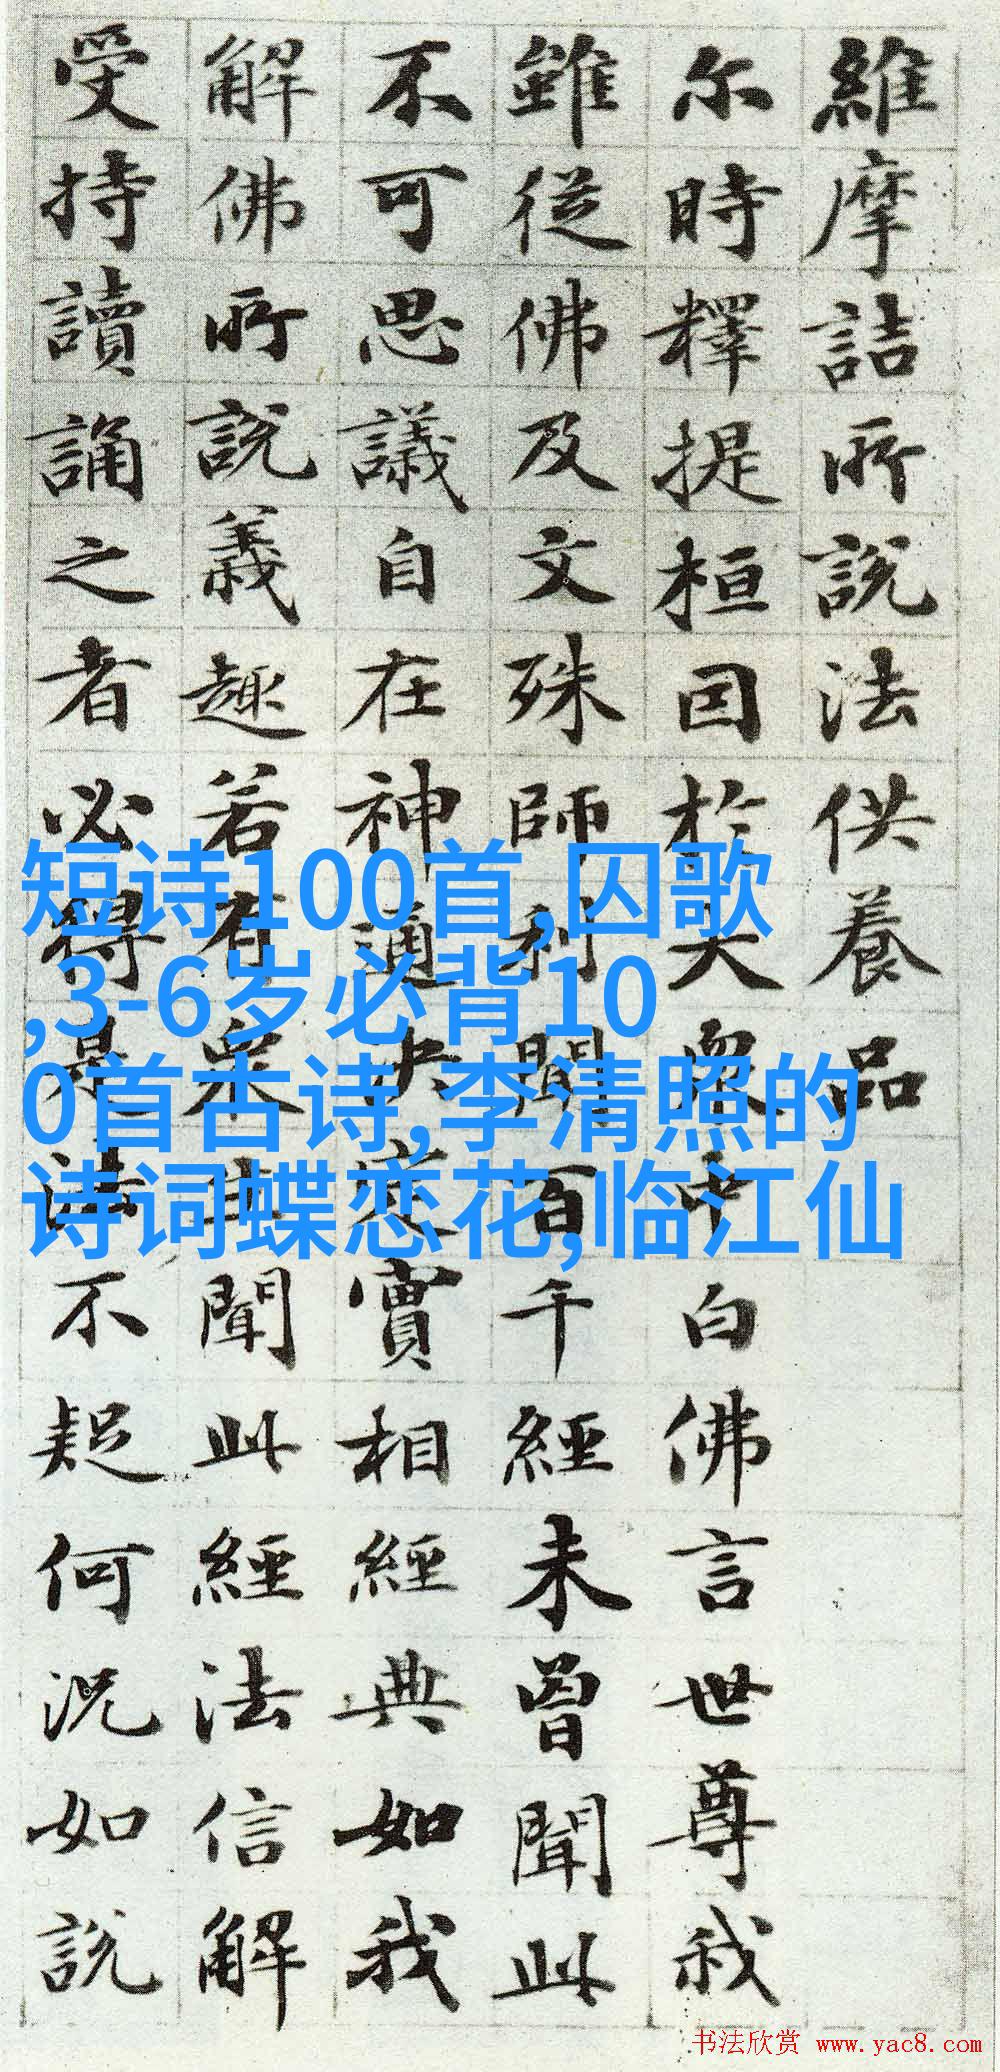 維摩詰所說法供養品
尔時釋提桓因於大衆中白佛言世尊我
雖從佛及文殊師利聞百千經未曾聞此
不可思議自在神通决定實相經典如我
解佛所說義趣若有衆生聞此經法信解
受持讀誦之者必得是法不疑何況如說
短诗100首,囚歌
,3-6岁必背10
0首古诗,李清照的
诗词蝶恋花,临江仙
书法欣赏 www.yac8.com